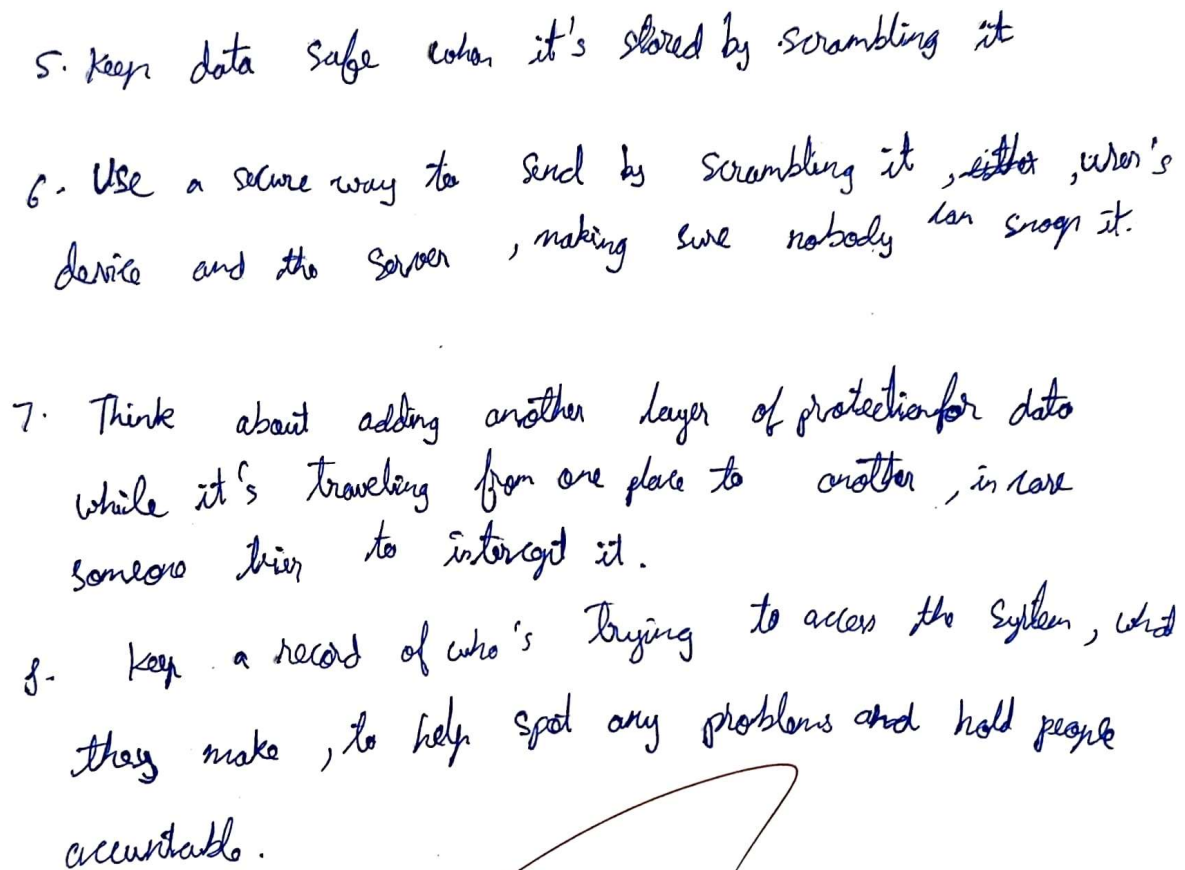 5. Keep data safe when it's stored by scrambling it
6. Use a secure way to send by scrambling it , either , user's
device and the server , making sure nobody can snoop it.
7. Think about adding another layer of protection for data
while it's traveling from one place to another , in case
someone tries to intercept it.
8. Keep a record of who's trying to access the system, what
they make , to help spot any problems and hold people
accuntable.